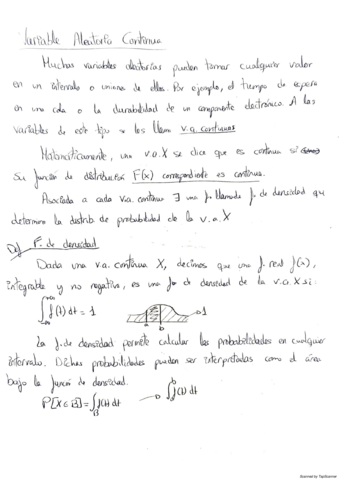 Variable Aleatoria Continua
Muchas variables aleatorias pueden tomar cualquier valor
en un intervalo o uniones de ellos. Por ejemplo, el tiempo de espera
en una cola o la durabilidad de un componente electrónico. A las
variables de este tipo se les llama v.a. continuas
Matemáticamente, una v.a. X se dice que es continua si
su función de distribución F(x) correspondiente es continua.
Asociada a cada v.a. continua ∃ una f. llamada f. de densidad que
determina la distrib. de probabilidad de la v.a. X
Def F. de densidad
Dada una v.a. continua X, decimos que una f. real f(x),
integrable y no negativa, es una f. de densidad de la v.a. X si:
∫_{-∞}^{+∞} f(t) dt = 1
a b
La f. de densidad permite calcular las probabilidades en cualquier
intervalo. Dichas probabilidades pueden ser interpretadas como el área
bajo la función de densidad.
P[X ∈ B] = ∫_B f(t) dt → ∫_a^b f(t) dt
Scanned by TapScanner